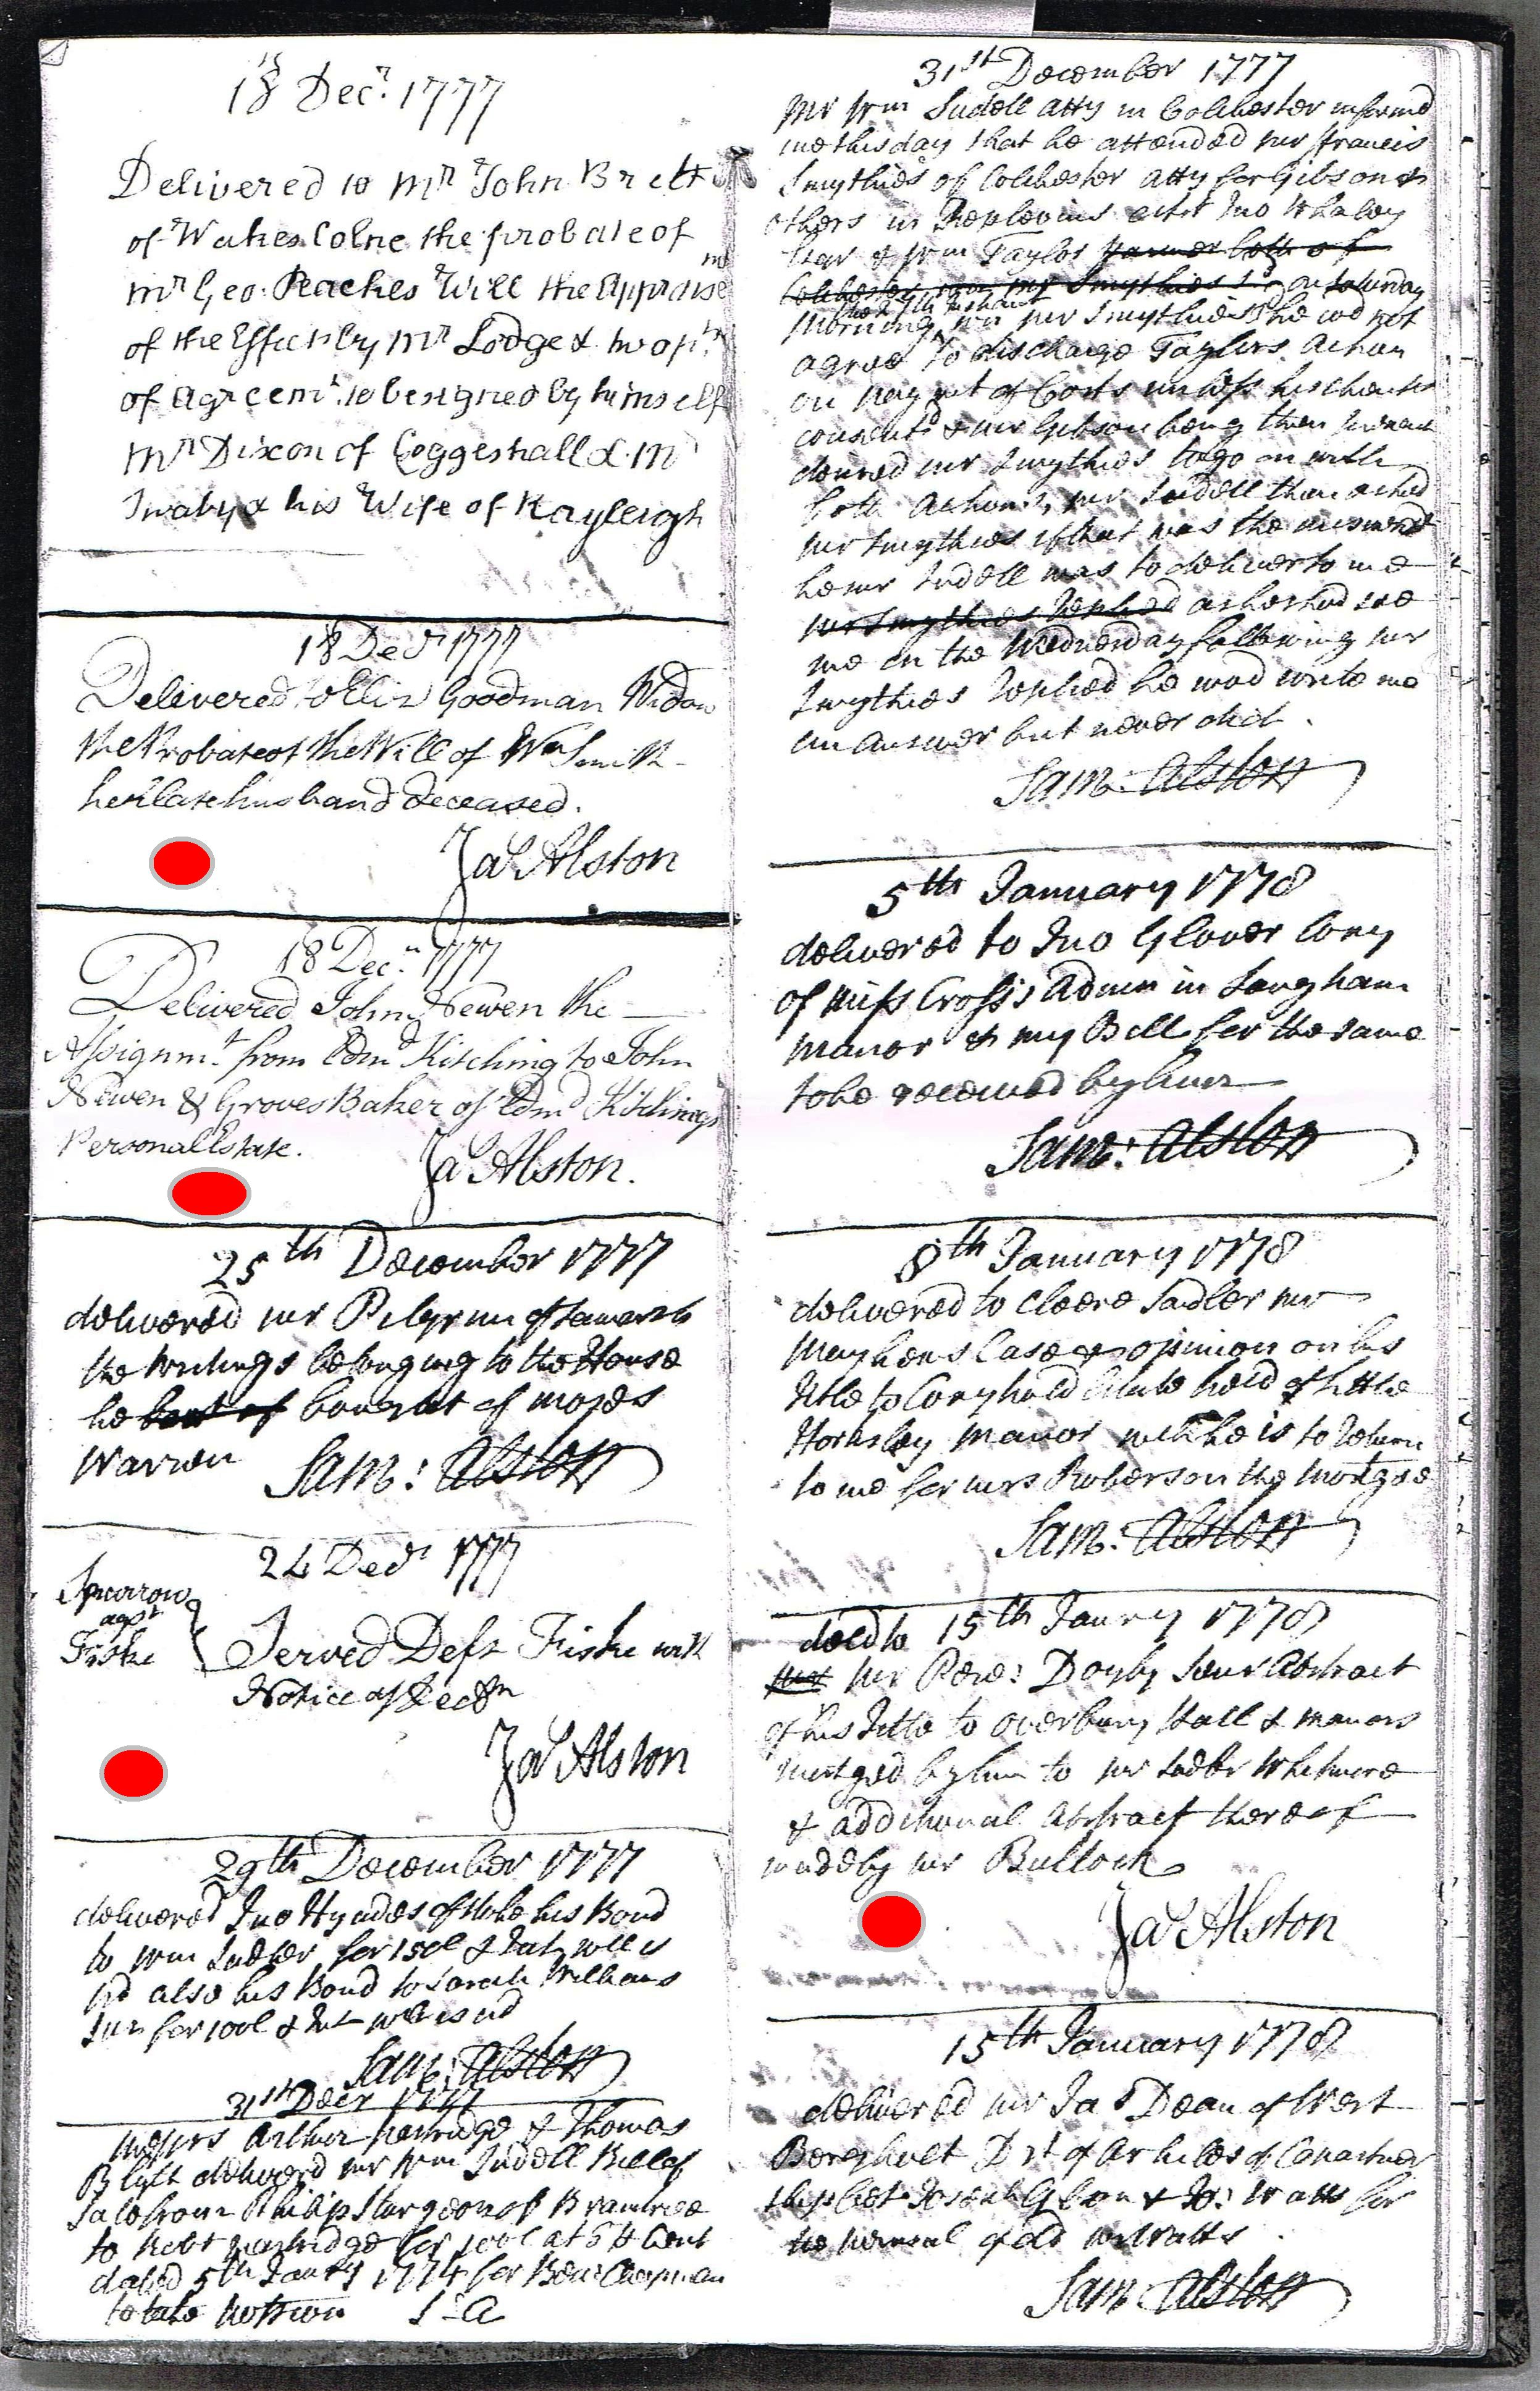 18 Decr. 1777
Delivered to Mr John Brett
of Wakes Colne the probate of
Mr Geo. Peaches Will the Appraisemt
of the Effects by Mr Lodge & two
of Agreemt. to be signed by himself
Mr Dixon of Coggeshall & Mr
& his Wife of Rayleigh
18 Decr 1777
Delivered to Eliz Goodman Widow
the Probate of the Will of Wm Smith
her late husband deceased.
Jas Alston
18 Decr. 1777
Delivered John Newen the
Assignmt from Edmd Kitching to John
Newen & Groves Baker of Edmd Kitchings
Personal Estate.
Jas Alston.
25th December 1777
delivered mr Pilgrim of Lamarsh
the writings belonging to the House
he bought of Moses
Warren Sam: Alston
24 Decr 1777
Sparrow
agst
Fiske
Served Deft Fiske with
Notice of
Jas Alston
29th December 1777
delivered Jno Hyndes of Stoke his Bond
to Wm Sadler for 150l & Int wch is
pd also his Bond to Sarah Williams
for 100l & Int wch is pd
Sam: Alston
31st Decr 1777
Messrs Arthur partridge & Thomas
Blyth delivered mr Wm Suddell Bill of
Sale from Philip Sturgeon of Braintree
to Robt partridge for 100l at 5 P Cent
dated 5th Janry 1774 for Benj Chapman
to take
S-A
31st December 1777
Mr Wm Sudell atty in Colchester informd
me this day that he attended mr Francis
Smythies of Colchester atty for Gibson &
others in Replevins agst Jno Whaley
& Wm Taylor Farmer both of
Colchester mr Smythies on Saturday
Morning mr Smythies he wod not
agree to discharge Taylors Action
on paymt of Costs unless his clients
consented & mr Gibson being then present
desired mr Smythies to go on with
both Actions, mr Sudell then asked
mr Smythies if that was the answer
he mr Sudell was to deliver to me
mr Smythies Replied as he shod see
me on the Wednesday following mr
Smythies Replied he wod write me
an answer but never did.
Sam: Alston
5th January 1778
delivered to Jno Glover Copy
of Miss Cross's Admn in Langham
Manor & my Bill for the same
to be received by him
Sam: Alston
8th January 1778
delivered to Cleere Sadler mr
Mayhews Case & opinion on his
title to Copyhold Estate held of little
Horksley Manor which he is to return
to me for mrs Roberson the Mortgee
Sam: Alston
15th Janry 1778
deld to
mr Rowd: Doyly Senr Abstract
of his Title to Overbury Hall & Manors
mortged by him to mr Whitmore
& additional Abstract thereof
made by mr Bullock
Jas Alston
15th January 1778
delivered mr Jas Dean of West
Bergholt Drt of Articles of Copartner
ship bet Joseph Glson & Jo: Watts for
the perusal of sd mr Watts.
Sam Alston